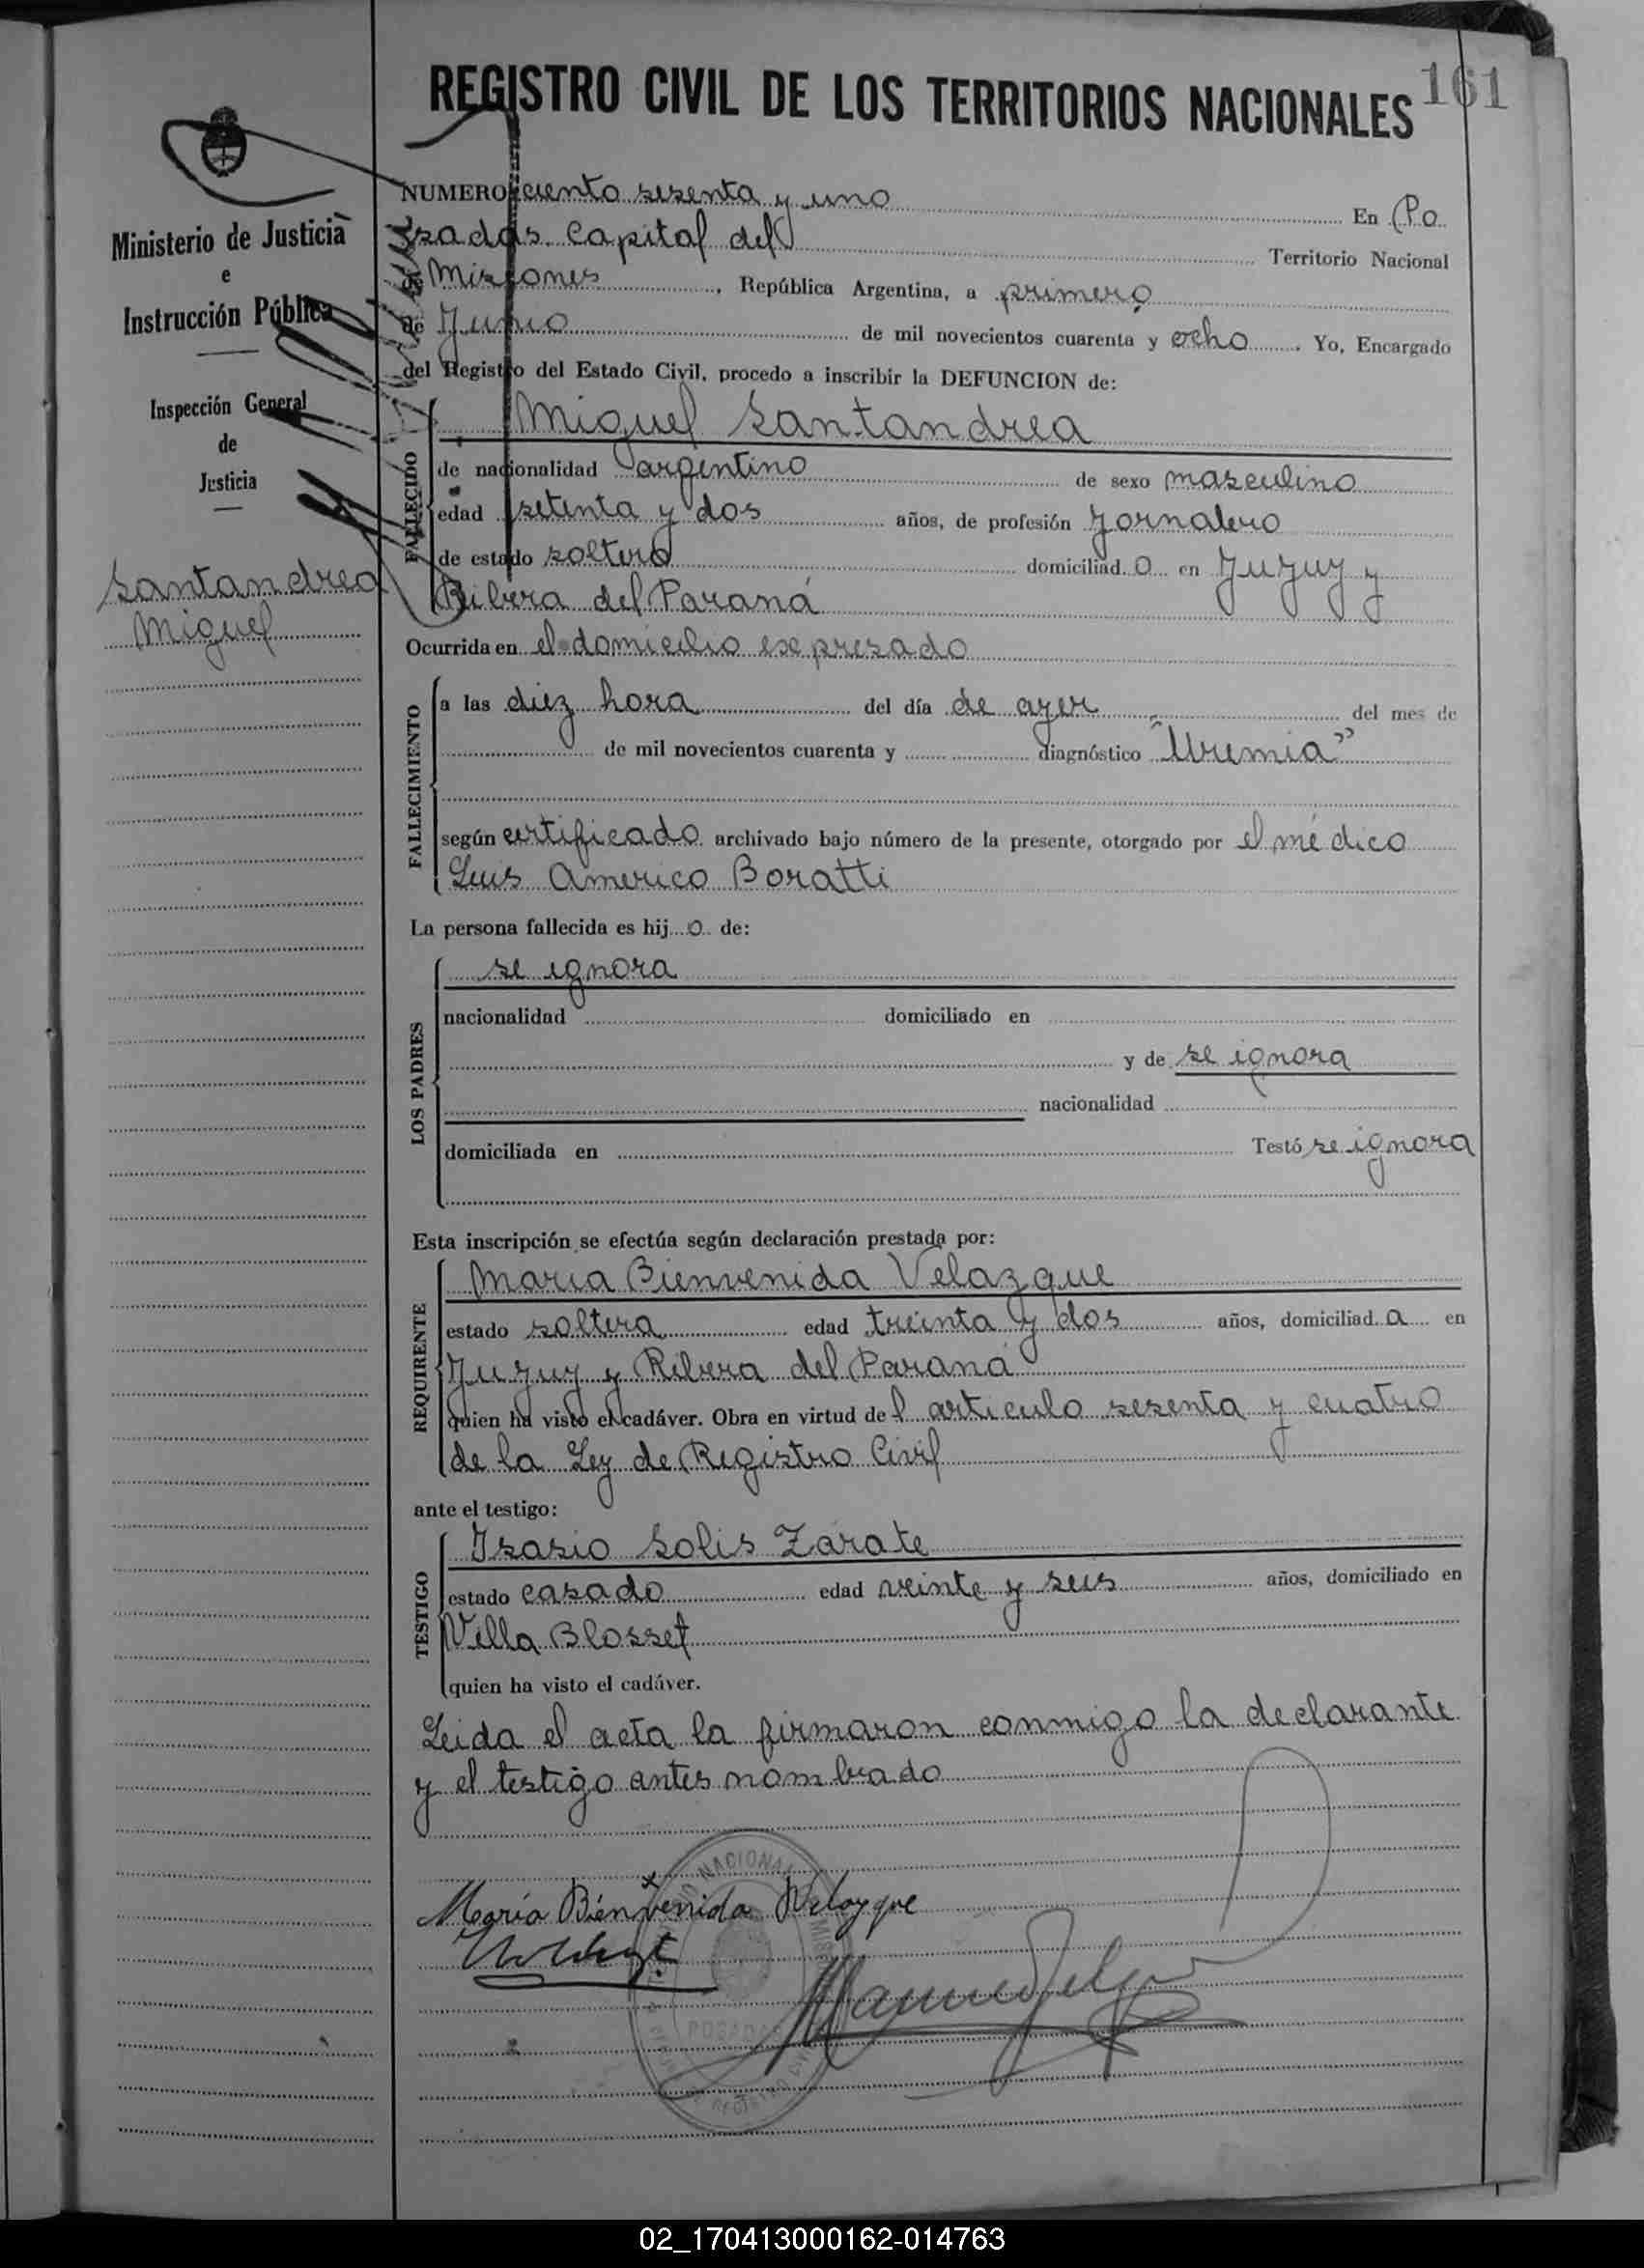 161
REGISTRO CIVIL DE LOS TERRITORIOS NACIONALES
Ministerio de Justicia
e
Instrucción Pública
Inspección General
de
Justicia
Santandrea
Miguel
NUMERO ciento sesenta y uno En Po
sadas Capital del Territorio Nacional
de Misiones, República Argentina, a primero
de Junio de mil novecientos cuarenta y ocho. Yo, Encargado
del Registro del Estado Civil, procedo a inscribir la DEFUNCION de:
FALLECIDO
Miguel Santandrea
de nacionalidad argentino de sexo masculino
edad setenta y dos años, de profesión Jornalero
de estado soltero domiciliad o en Jujuy y
Ribera del Paraná
Ocurrida en el domicilio expresado
FALLECIMIENTO
a las diez hora del día de ayer del mes de
de mil novecientos cuarenta y diagnóstico "Uremia"
según certificado archivado bajo número de la presente, otorgado por el médico
Luis Americo Boratti
La persona fallecida es hij o de:
LOS PADRES
se ignora
nacionalidad domiciliado en
y de se ignora
nacionalidad
domiciliada en Testó se ignora
Esta inscripción se efectúa según declaración prestada por:
REQUIRENTE
Maria Bienvenida Velazque
estado soltera edad treinta y dos años, domiciliad a en
Jujuy y Ribera del Paraná
quien ha visto el cadáver. Obra en virtud de l articulo sesenta y cuatro
de la Ley de Registro Civil
ante el testigo:
TESTIGO
Isasio Solis Zárate
estado casado edad veinte y seis años, domiciliado en
Villa Blosset
quien ha visto el cadáver.
Leida el acta la firmaron conmigo la declarante
y el testigo antes nombrado
María Bienvenida Velazque
NACIONAL
POSADAS
REGISTRO CIVIL
02_170413000162-014763